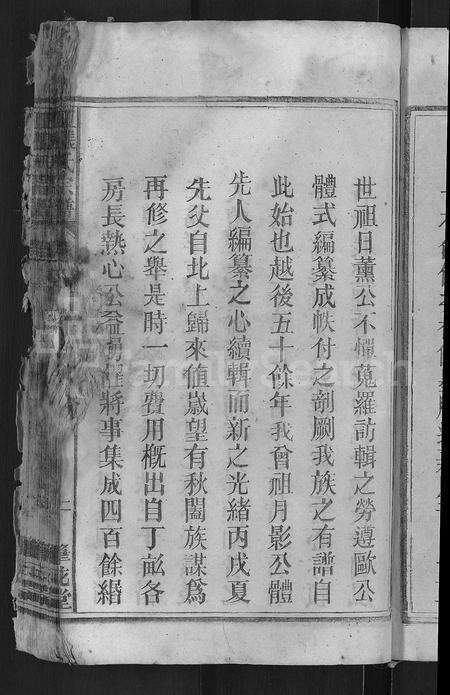 世祖日薰公不憚蒐羅訪輯之勞遵歐公
體式編纂成帙付之剞劂我族之有譜自
此始也越後五十餘年我會祖月影公體
先人編纂之心續輯而新之光緒丙戌夏
先父自北上歸來值歲望有秋闔族謀為
再修之舉是時一切費用概出自丁畝各
房長熱心公益 將事集成四百餘緡
二
堂
FamilySearch